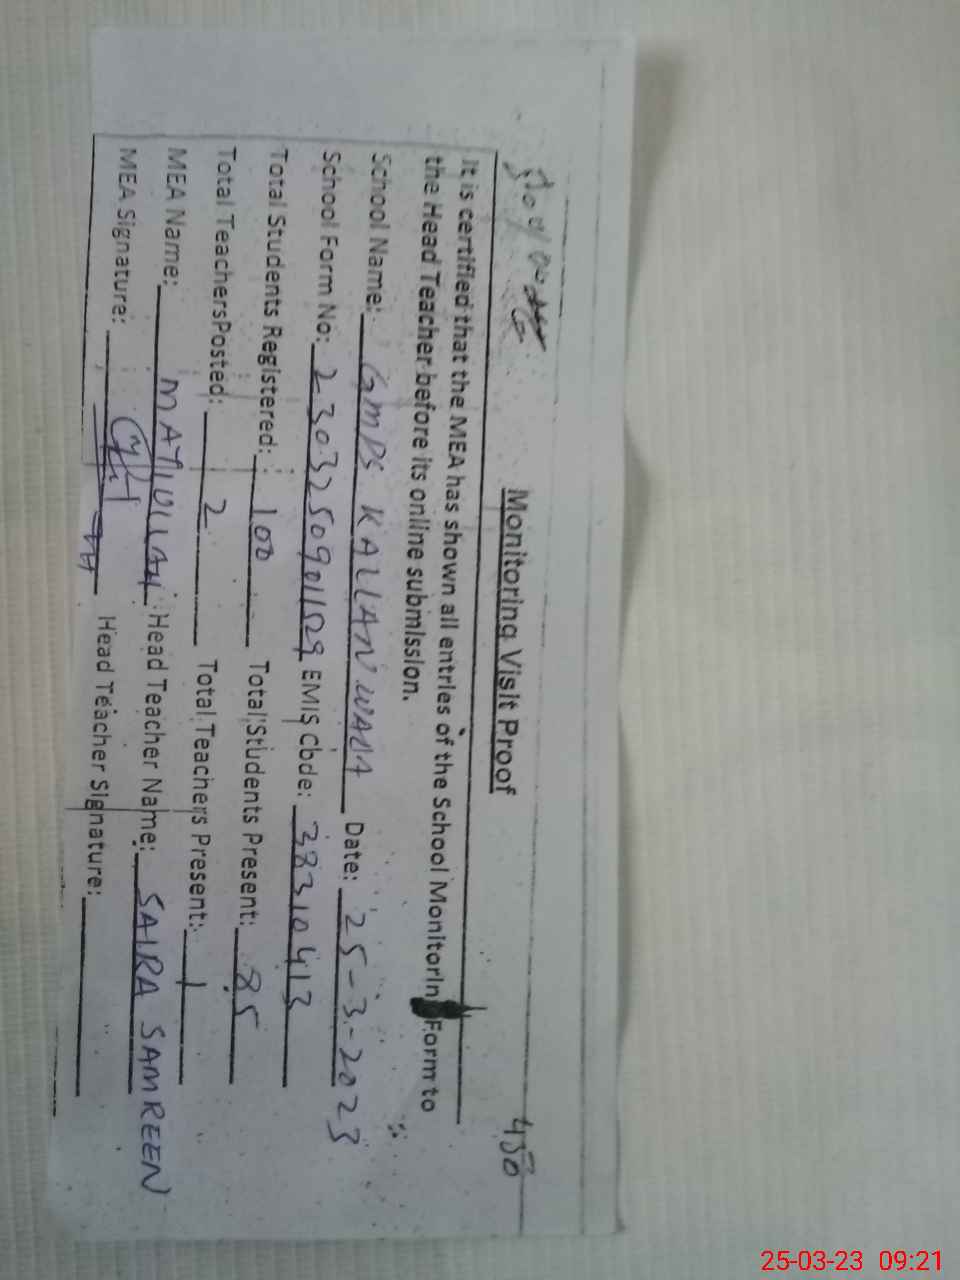 430
Monitoring Visit Proof
It is certified that the MEA has shown all entries of the School Monitorin Form to
the Head Teacher before its online submission.
School Name: GMPS KALLAN WALA Date: 25-3-2023
School Form No: 2303250901529 EMIS Code: 38310413
Total Students Registered: 100 Total Students Present: 85
Total TeachersPosted: 2 Total Teachers Present: 1
MEA Name: MATIULLAH Head Teacher Name: SAIRA SAMREEN
MEA Signature: Head Teacher Signature:
25-03-23 09:21